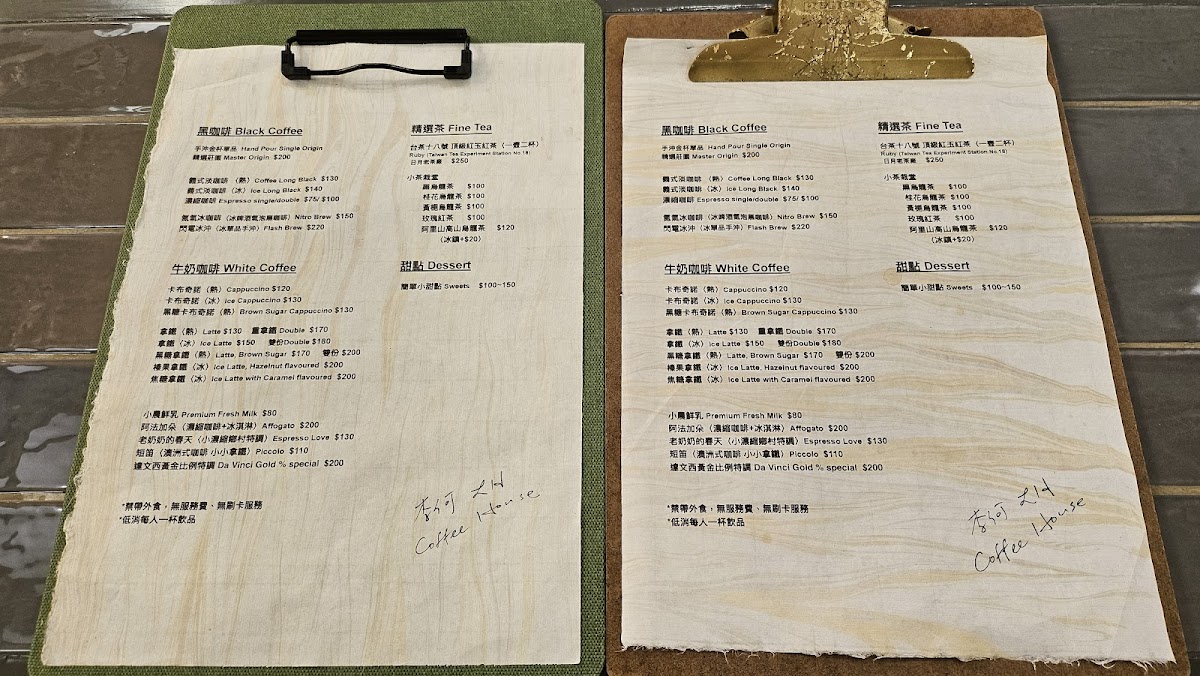 黑咖啡 Black Coffee
手沖金杯單品 Hand Pour Single Origin
精選莊園 Master Origin $200
義式淡咖啡 （熱）Coffee Long Black $130
義式淡咖啡 （冰）Ice Long Black $140
濃縮咖啡 Espresso single/double $75/ $100
氮氣冰咖啡（冰啤酒氣泡黑咖啡）Nitro Brew $150
閃電冰沖（冰單品手沖）Flash Brew $220
牛奶咖啡 White Coffee
卡布奇諾（熱）Cappuccino $120
卡布奇諾（冰）Ice Cappuccino $130
黑糖卡布奇諾（熱）Brown Sugar Cappuccino $130
拿鐵（熱）Latte $130 重拿鐵 Double $170
拿鐵（冰）Ice Latte $150 雙份Double $180
黑糖拿鐵（熱）Latte, Brown Sugar $170 雙份 $200
榛果拿鐵（冰）Ice Latte, Hazelnut flavoured $200
焦糖拿鐵（冰）Ice Latte with Caramel flavoured $200
小農鮮乳 Premium Fresh Milk $80
阿法加朵（濃縮咖啡+冰淇淋）Affogato $200
老奶奶的春天（小濃縮鄉村特調）Espresso Love $130
短笛（澳洲式咖啡 小小拿鐵）Piccolo $110
達文西黃金比例特調 Da Vinci Gold % special $200
*禁帶外食，無服務費、無刷卡服務
*低消每人一杯飲品
精選茶 Fine Tea
台茶十八號 頂級紅玉紅茶（一壺二杯）
Ruby (Taiwan Tea Experiment Station No.18)
日月老茶廠 $250
小茶栽堂
黑烏龍茶 $100
桂花烏龍茶 $100
黃梔烏龍茶 $100
玫瑰紅茶 $100
阿里山高山烏龍茶 $120
（冰鎮+$20）
甜點 Dessert
簡單小甜點 Sweets $100~150
Coffee House
黑咖啡 Black Coffee
手沖金杯單品 Hand Pour Single Origin
精選莊園 Master Origin $200
義式淡咖啡 （熱）Coffee Long Black $130
義式淡咖啡 （冰）Ice Long Black $140
濃縮咖啡 Espresso single/double $75/ $100
氮氣冰咖啡（冰啤酒氣泡黑咖啡）Nitro Brew $150
閃電冰沖（冰單品手沖）Flash Brew $220
牛奶咖啡 White Coffee
卡布奇諾（熱）Cappuccino $120
卡布奇諾（冰）Ice Cappuccino $130
黑糖卡布奇諾（熱）Brown Sugar Cappuccino $130
拿鐵（熱）Latte $130 重拿鐵 Double $170
拿鐵（冰）Ice Latte $150 雙份Double $180
黑糖拿鐵（熱）Latte, Brown Sugar $170 雙份 $200
榛果拿鐵（冰）Ice Latte, Hazelnut flavoured $200
焦糖拿鐵（冰）Ice Latte with Caramel flavoured $200
小農鮮乳 Premium Fresh Milk $80
阿法加朵（濃縮咖啡+冰淇淋）Affogato $200
老奶奶的春天（小濃縮鄉村特調）Espresso Love $130
短笛（澳洲式咖啡 小小拿鐵）Piccolo $110
達文西黃金比例特調 Da Vinci Gold % special $200
*禁帶外食，無服務費、無刷卡服務
*低消每人一杯飲品
精選茶 Fine Tea
台茶十八號 頂級紅玉紅茶（一壺二杯）
Ruby (Taiwan Tea Experiment Station No.18)
日月老茶廠 $250
小茶栽堂
黑烏龍茶 $100
桂花烏龍茶 $100
黃梔烏龍茶 $100
玫瑰紅茶 $100
阿里山高山烏龍茶 $120
（冰鎮+$20）
甜點 Dessert
簡單小甜點 Sweets $100~150
Coffee House